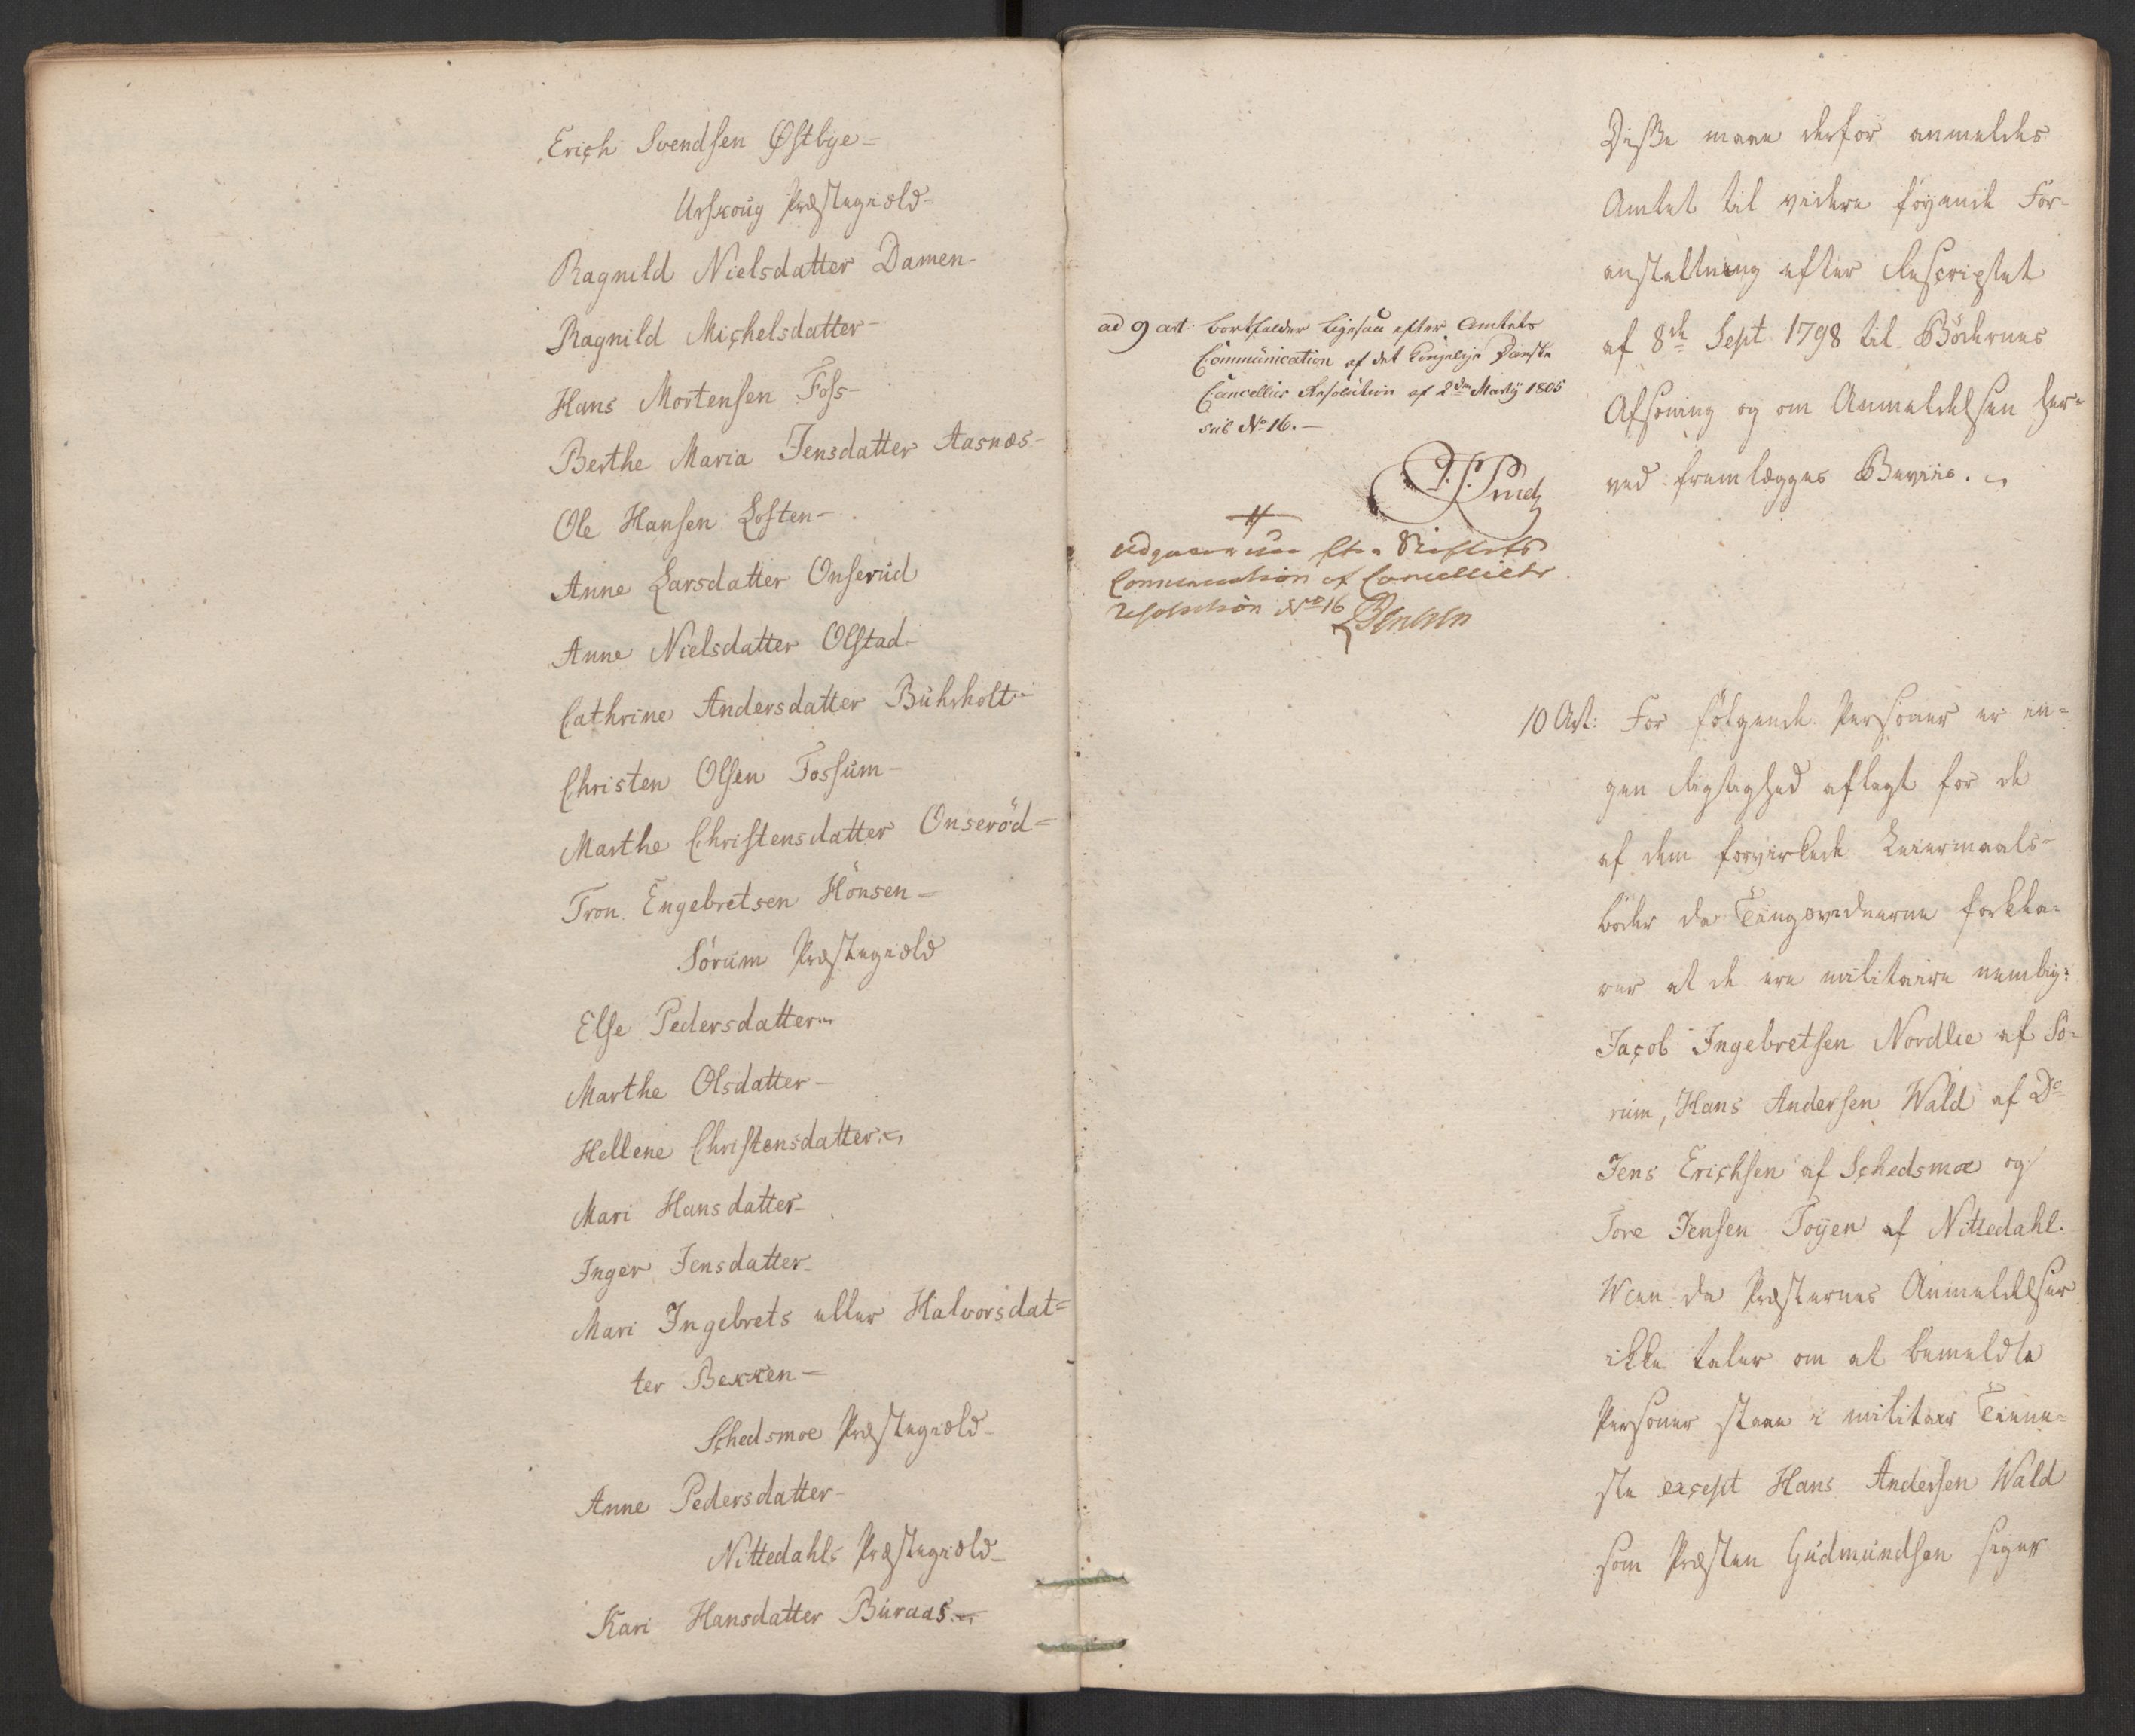 Erich Svendsen Østbye-
Urskoug Præstegield-
Ragnild Nielsdatter Damen-
Ragnild Michelsdatter-
Hans Mortensen Foss-
Berthe Maria Jensdatter Aasnæs-
Ole Hansen Loften-
Anne Larsdatter Onserud
Anne Nielsdatter Olstad-
Cathrine Andersdatter Buhrholt-
Christen Olsen Fossum-
Marthe Christensdatter Onseröd=
Tron Engebretsen Hönsen-
Sörum Præstegield
Else Pedersdatter-
Marthe Olsdatter-
Hellene Christensdatter-
Mari Hansdatter-
Inger Jensdatter-
Mari Ingebrets eller Halvorsdat=
ter Bekken-
Schedsmoe Præstegield-
Anne Pedersdatter-
Nittedahls Præstegield-
Kari Hansdatter Buraas-
ad 9 art: bortfalder ligesaa efter Amtets
Communication af det Kongelige Danske
Cancellies Resolution af 2den Martij 1805
sub No 16.-
Communication af Cancelliets
resolution No 16
Disse maae derfor anmeldes
Amtet til videre föyende For-
anstaltning efter Rescriptet
af 8de Sept 1798 til Bödernes
Afsoning og om Anmeldelsen her=
ved fremlægges Beviis.
10 Art: For fölgende Personer er in=
gen Rigtighed aflagt for de
af dem forvirkede Leiermaals-
böder da Tingsvidnerne forkla=
rer at de ere militaire nemlig:
Jacob Ingebretsen Nordlie af Sö-
rum, Hans Andersen Wald af Do
Jens Erichsen af Schedsmoe og
Tore Jensen Toyen af Nittedahl.
Men da Præsternes Anmeldelser
ikke taler om at bemeldte
Personer staae i militair Tiene=
ste except Hans Andersen Wald
som Præsten Gudmundsen siger